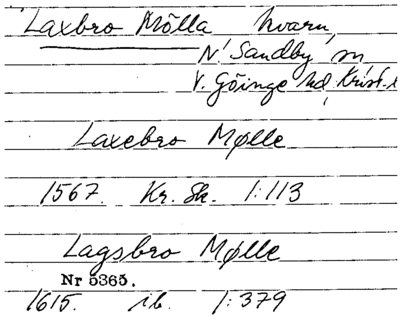 Laxbro Mölla kvarn,
N. Sandby sn
V. Göinge hd, Krist. l
Laxebro Mølle
1567. Kr. Sk. 1:113
Lagsbro Mølle
Nr 5365.
1615. ib. 1:379